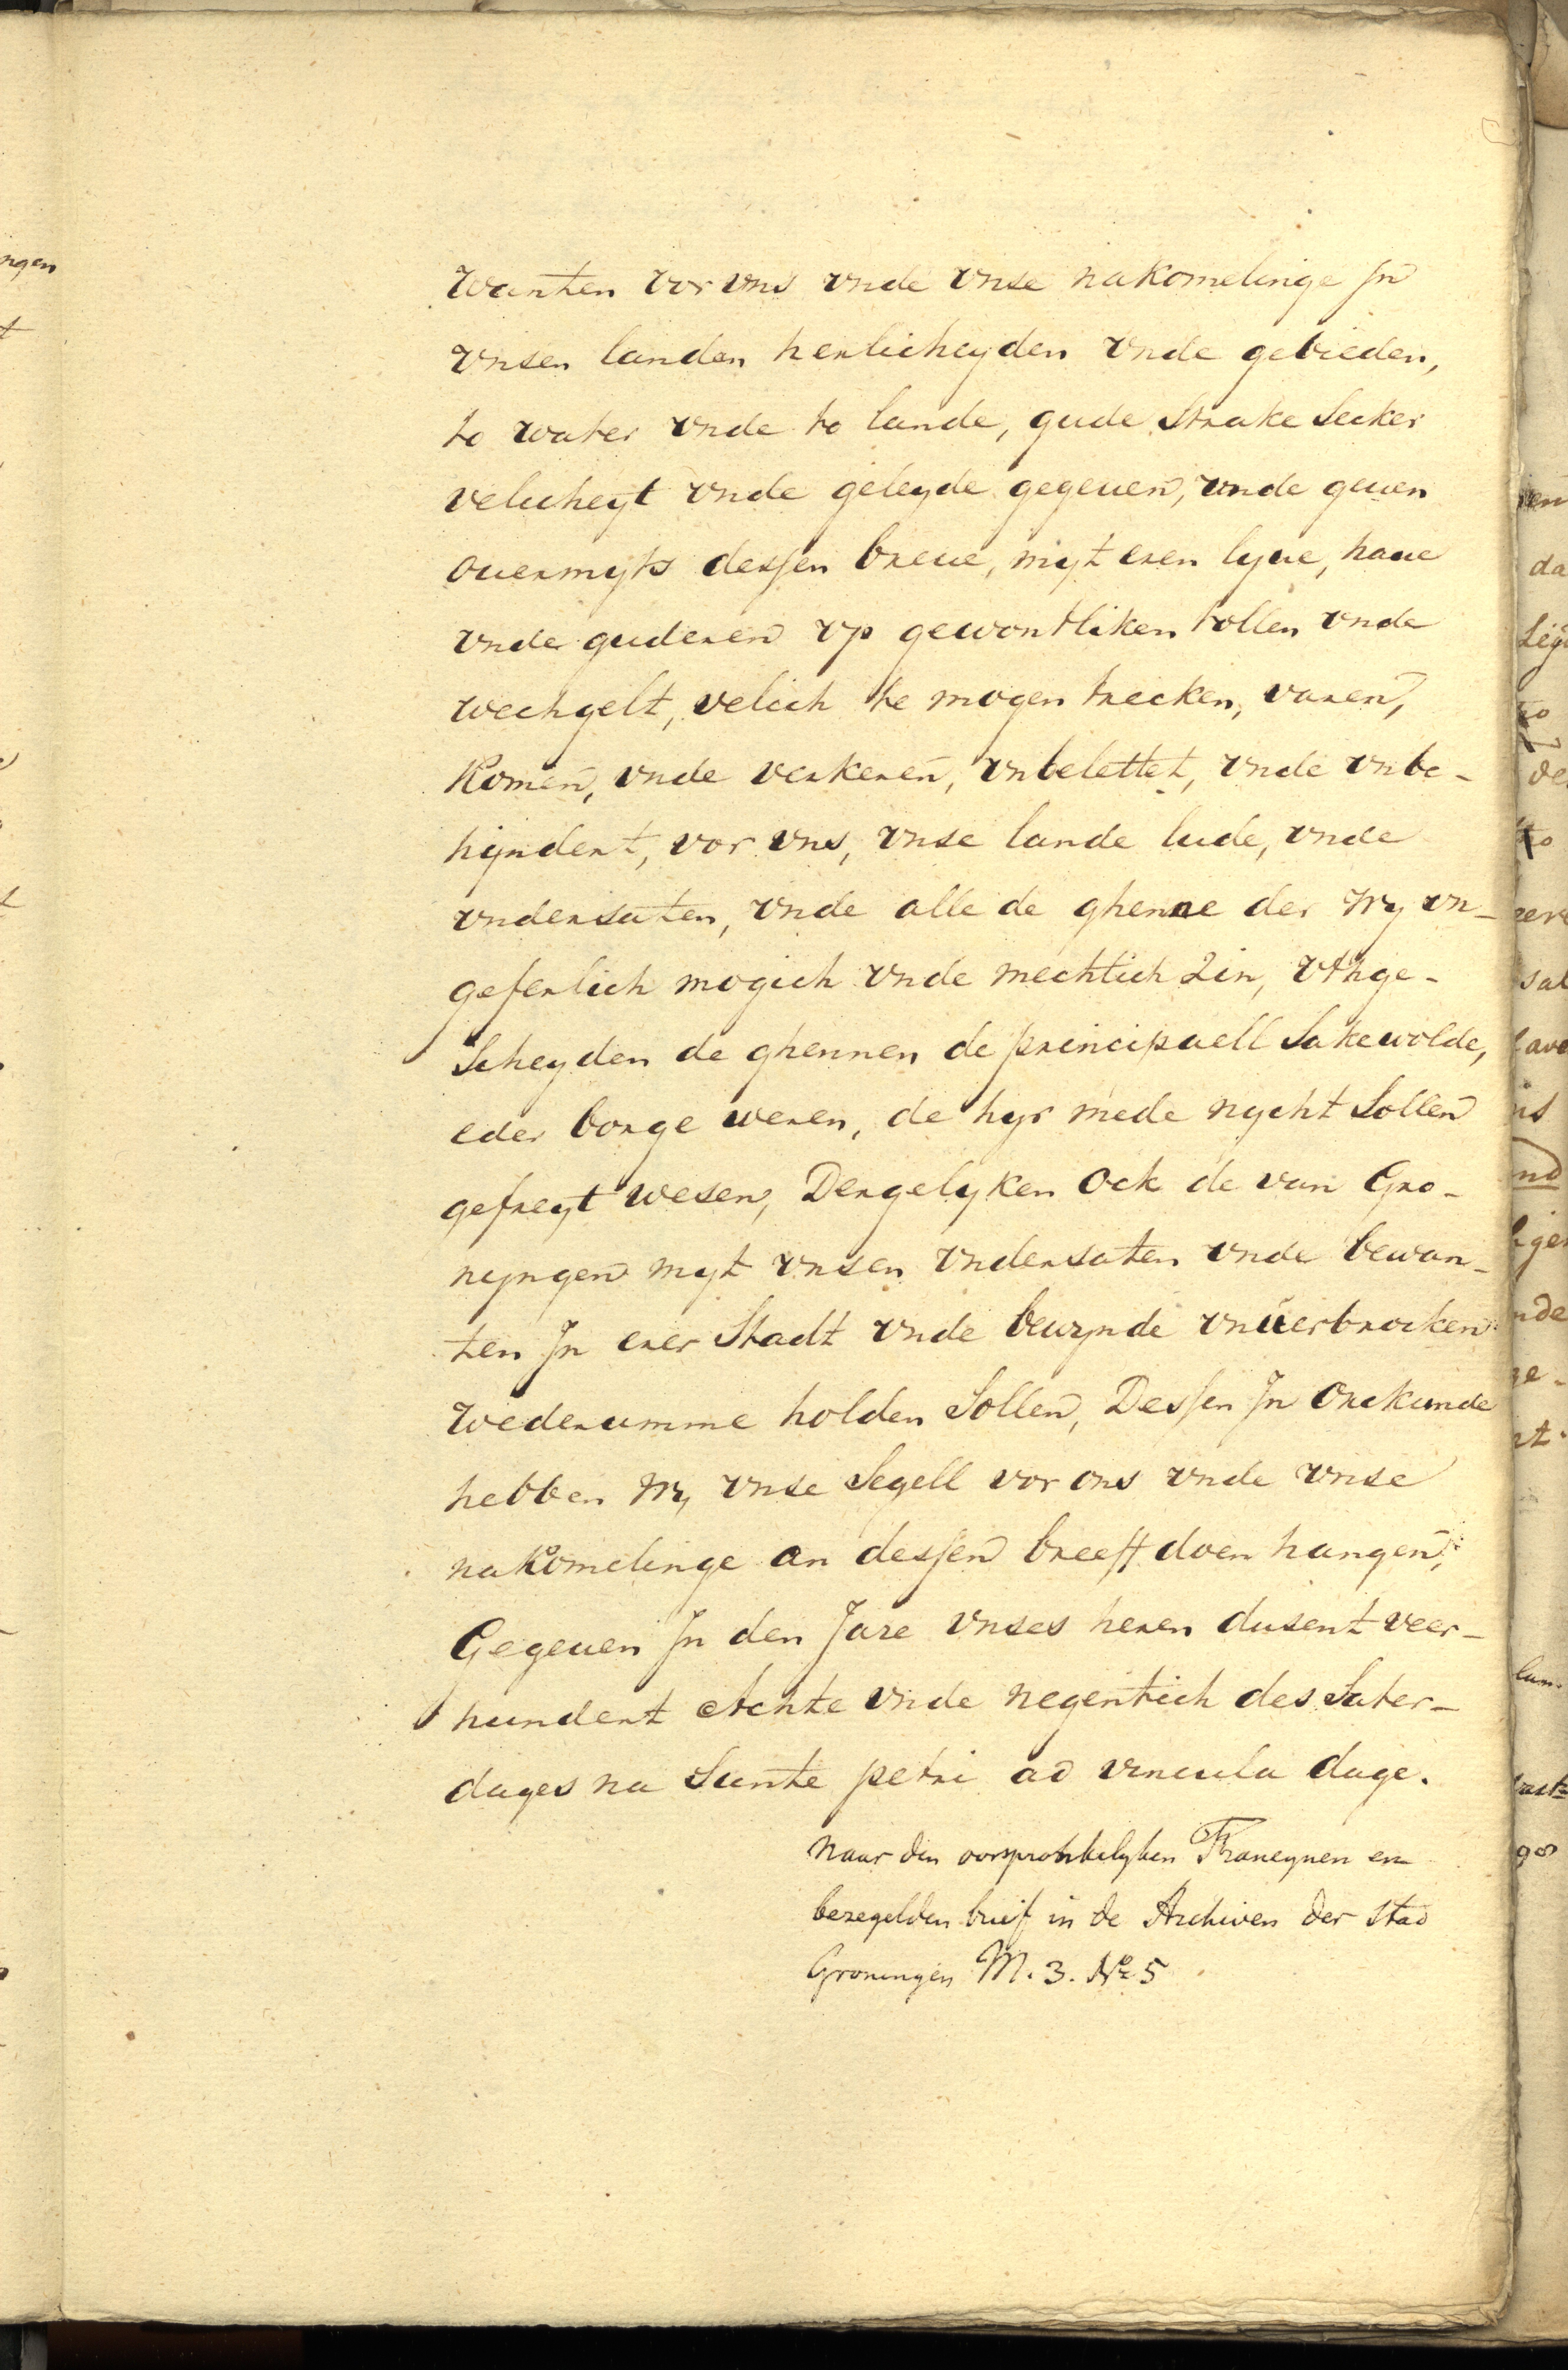 wanten vor vns vnde vnse nakomelinge Jn
vnsen landen herlicheyden vnde gebieden,
to water vnde to lande, gude Strake Seeker
velicheyt vnde geleyde gegeuen, vnde geuen
ouermyts dessen breue, myt eren lyue, haue
vnde guderen vp gewontliken tollen vnde
wechgelt, velich te mogen trecken, varen,
Komen, vnde verkeren, vnbelettet, vnde vnbe-
hyndert, vor vns, vnse lande lude, vnde
vndersaten, vnde alle de ghenne der wy vn-
geferlich mogich vnde mechtich Zin, vthge-
Scheyden de ghennen de principaell Sakewolde,
eder borge weren, de hyr mede nycht Sollen
gefreyt wesen, Dergelyken Ock de van Gro-
nyngen myt vnsen vndersaten vnde bewan-
ten Jn erer Stadt vnde bewynde vnuerbrocken
wederumme holden Sollen, Dessen Jn Orckunde
hebben wy vnse Segell vor ons vnde vnse
nakomelinge an dessen breeff doen hangen,
Gegeuen Jn den Jare vnses heren dusent veer-
hundert Achte vnde negentich des Sater-
dages na Sunte petri ad vincula dage.
Naar den oorspronkelyken Franeynen en
bezegelden brief in de Archiven der Stad
Groningen M. 3. No 5
ngen
t
t
da
to
de
to
sal
is
nd
nde
ge-
98